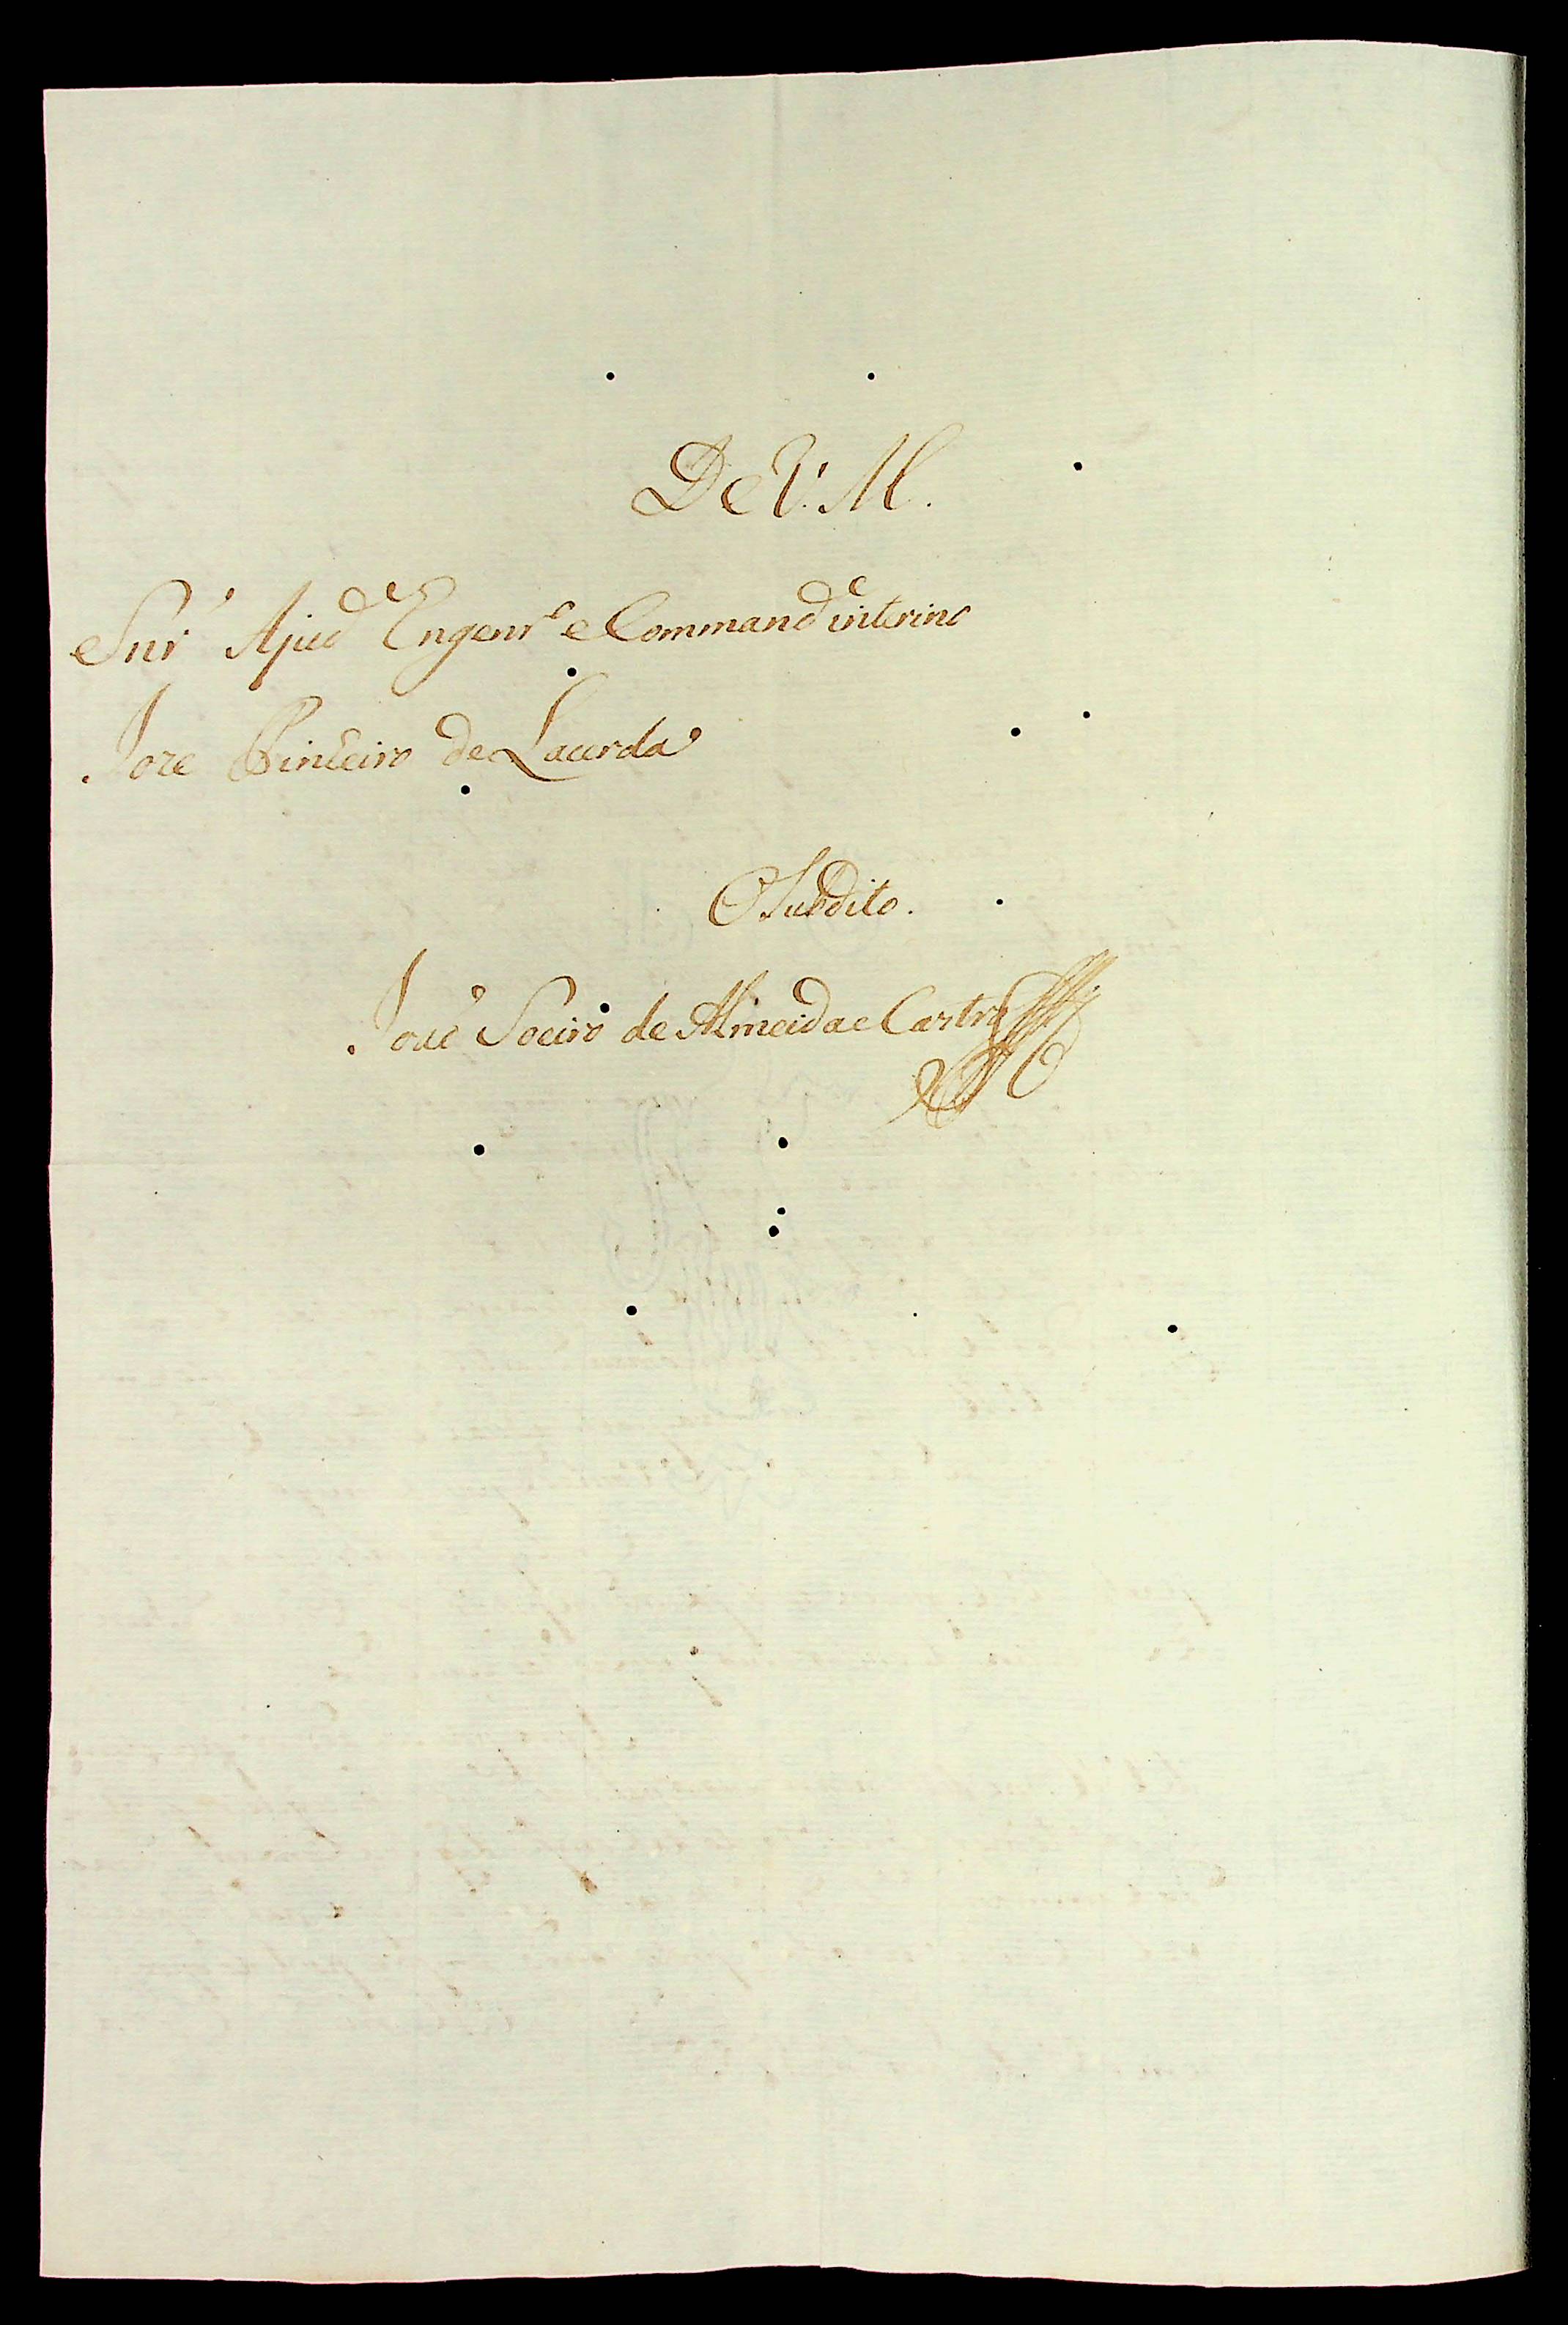 De V. M.
Snr' Ajud.e Engenr.o e Command.e interino
Joze Pinheiro de Lacerda
O Subdito.
José Soeiro de Almeida e Castro